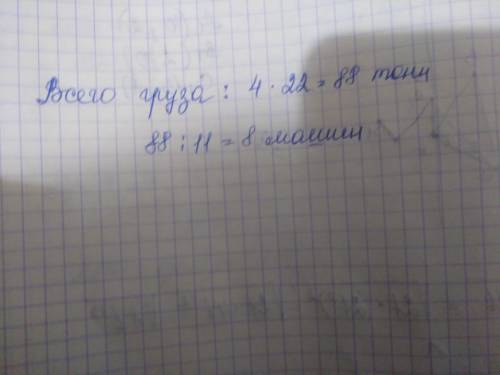 Всего груза: 4 · 22 = 88 тонн
88 : 11 = 8 машин